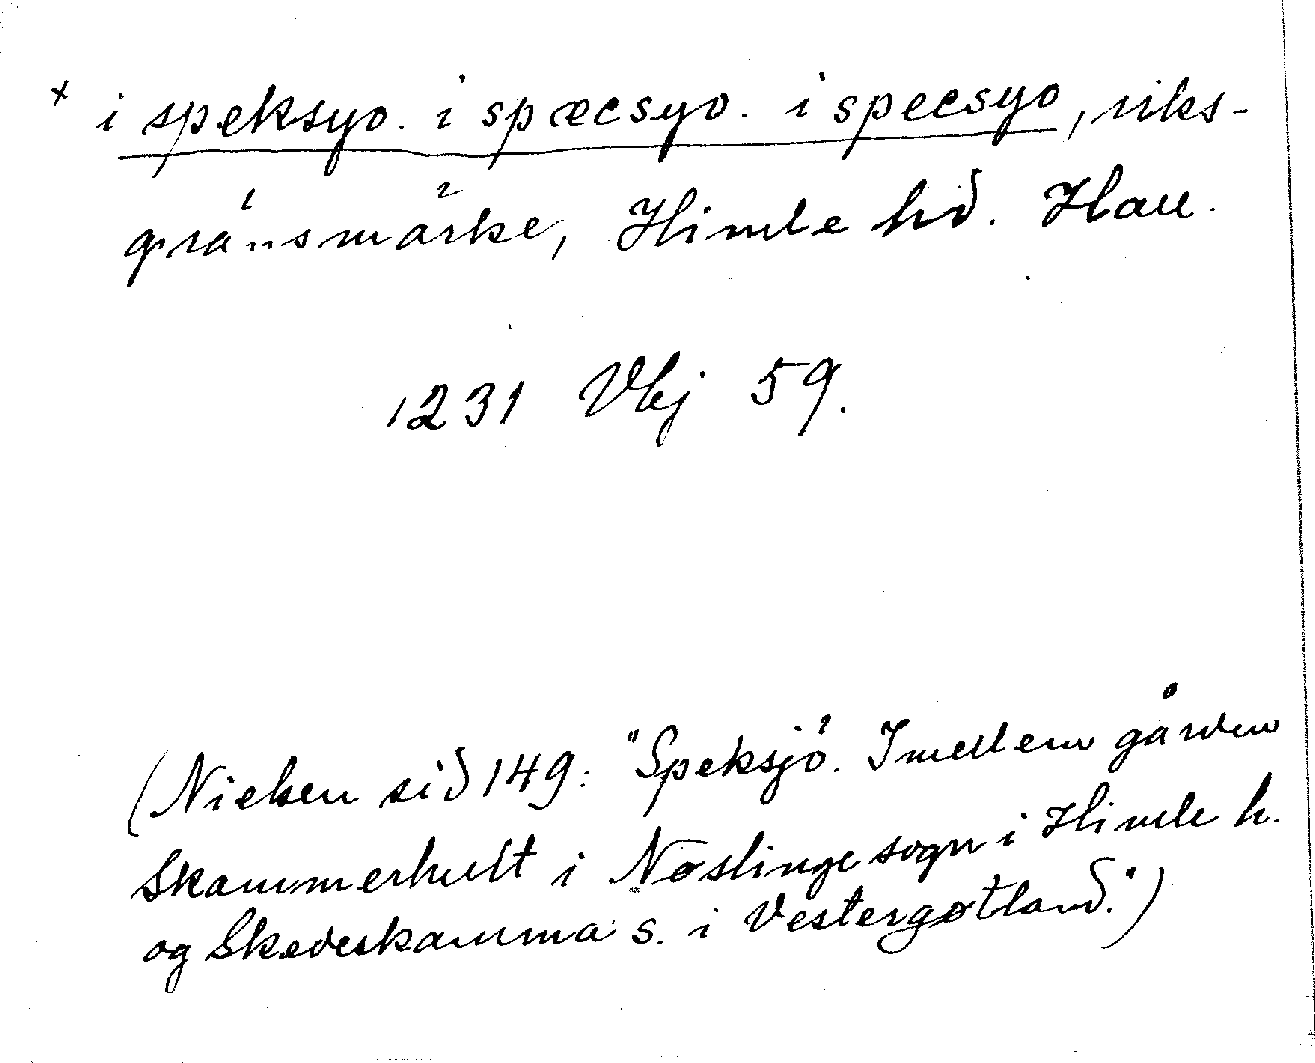 × i speksyo. i spæcsyo. i specsyo, riks-
gränsmärke, Himle hd. Hall.
1231 Vbj 59.
(Nielsen sid 149: "Speksjö. Imellem gården
Skammerhult i Nøslinge sogn i Himle h.
og Skedeskamma s. i Vestergøtland.")